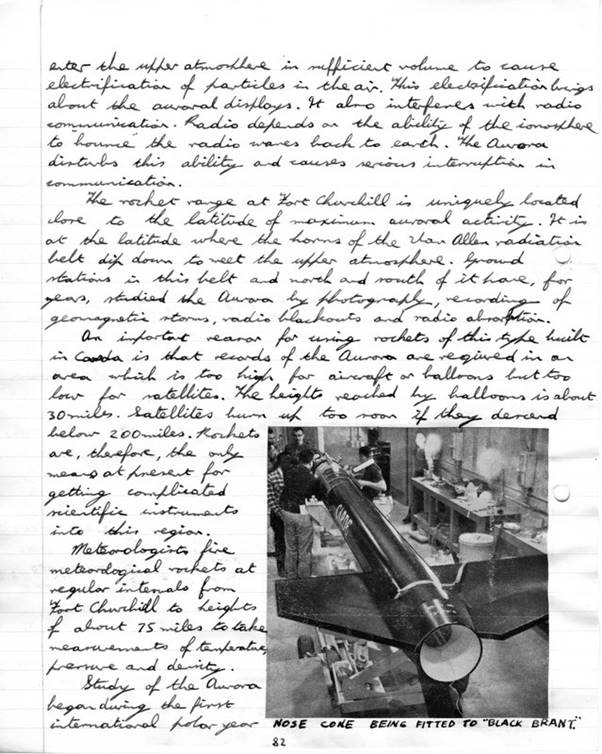 enter the upper atmosphere in sufficient volume to cause
electrification of particles in the air. This electrification brings
about the auroral displays. It also interferes with radio
communication. Radio depends on the ability of the ionosphere
to "bounce" the radio waves back to earth. The Aurora
disturbs this ability and causes serious interruption in
communication.
The rocket range at Fort Churchill is uniquely located
close to the latitude of maximum auroral activity. It is
at the latitude where the horns of the Van Allen radiation
belt dip down to meet the upper atmosphere. Ground
stations in this belt and north and south of it have, for
years, studied the Aurora by photography, recording of
geomagnetic storms, radio blackouts and radio absorption.
An important reason for using rockets of this type built
in Canada is that records of the Aurora are required in an
area which is too high for aircraft or balloons but too
low for satellites. The heights reached by balloons is about
30 miles. Satellites burn up too soon if they descend
below 200 miles. Rockets
are, therefore, the only
means at present for
getting complicated
scientific instruments
into this region.
Meteorologists fire
meteorological rockets at
regular intervals from
Fort Churchill to heights
of about 75 miles to take
measurements of temperature,
pressure and density.
Study of the Aurora
began during the first
international polar year
NOSE CONE BEING FITTED TO "BLACK BRANT."
82